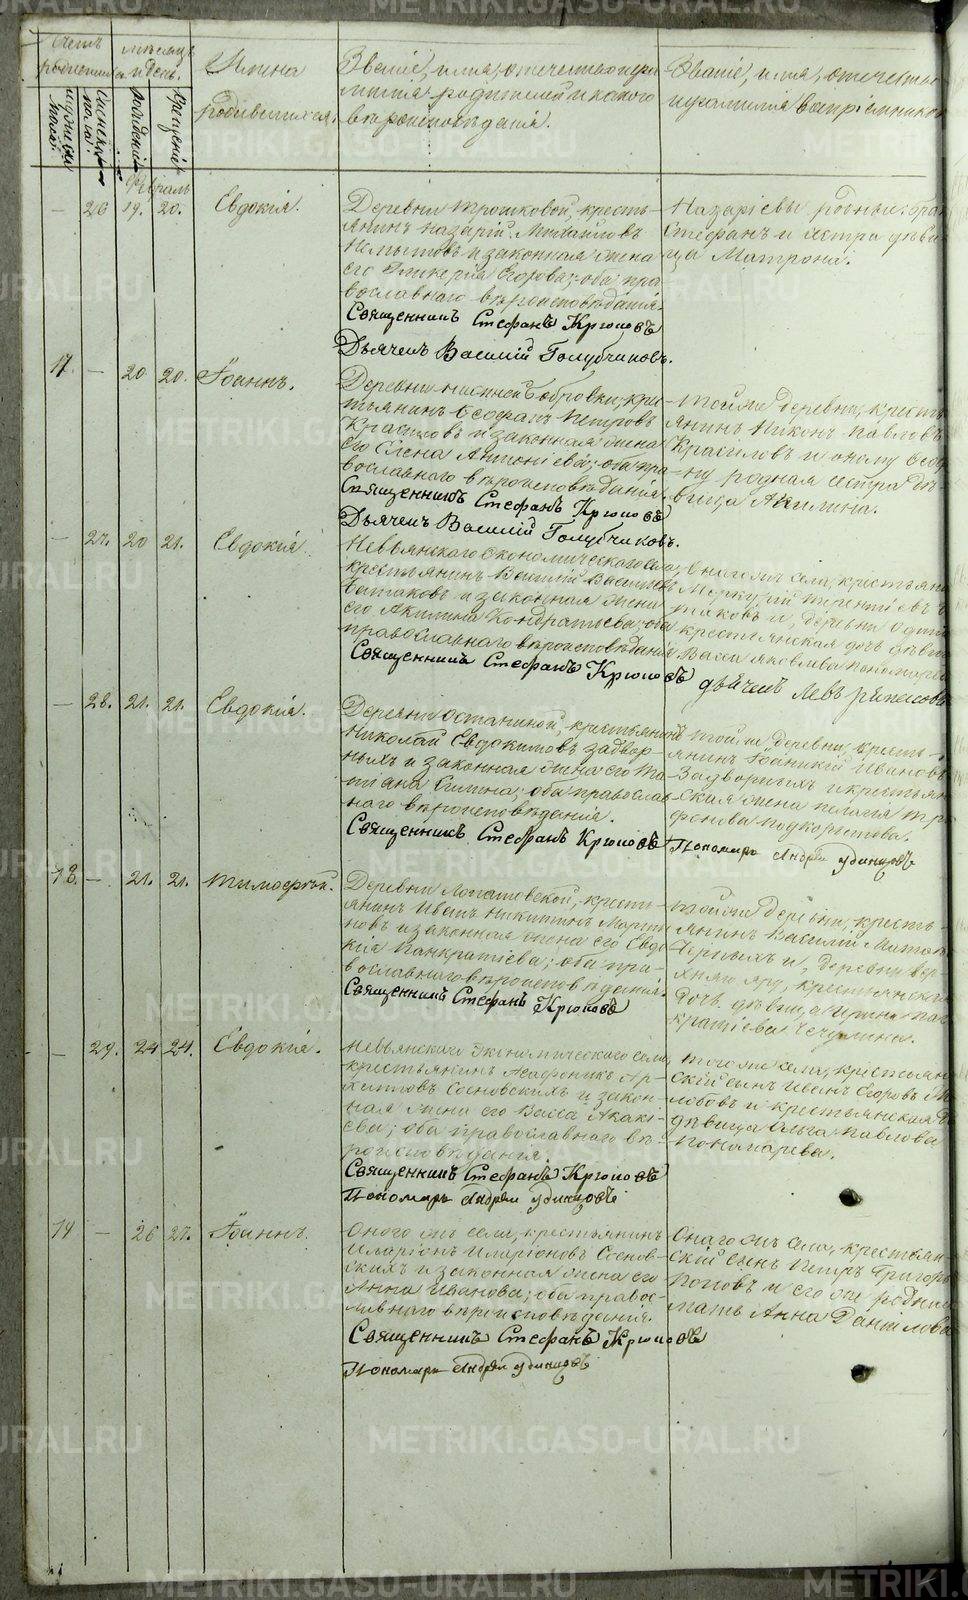 Счетъ родившихся
Мѣсяцъ и день.
Имена родившихся.
Званіе, имя, отечество и фамилія родителей и какого вѣроисповѣданія.
Званіе, имя, отечество и фамилія воспріемниковъ
мужеска пола.
женска пола.
рожденія
крещенія
Февраль
— 26 19. 20. Евдокія.
Деревни Трошковой, кресть-
янинъ Назарій Михайловъ
Немытовъ и законная жена
его Гликерія Егорова; оба пра-
вославнаго вѣроисповѣданія.
Священникъ Стефанъ Крюковъ
Дьячекъ Василій Голубчиковъ.
Назаріевы родные: братъ
Стефанъ и сестра дѣви-
ца Матрона.
17. — 20 20. Іоаннъ.
Деревни нижней Бобровки, крес-
тьянинъ Феофанъ Петровъ
Красиловъ и законная жена
его Елена Антоніева; оба пра-
вославнаго вѣроисповѣданія.
Священникъ Стефанъ Крюковъ
Дьячекъ Василій Голубчиковъ.
Той же деревни, кресть-
янинъ Никонъ Павловъ
Красиловъ и оному Феофа-
ну родная сестра дѣ-
вица Акилина.
— 27. 20 21. Евдокія.
Невьянскаго Экономическаго села,
крестьянинъ Василій Васильевъ
и законная жена
его Акилина Кондратьева; оба
православнаго вѣроисповѣданія
Священникъ Стефанъ Крюковъ
Онаго жъ села, крестьянинъ
Меркурій Терентіевъ
и, деревни
крестьянская дочь дѣвица
Васса Яковлева Пономарева
дьячекъ Левъ
— 28. 21. 21. Евдокія.
Деревни Останиной, крестьянинъ
Николай Евдокимовъ Задвор-
ныхъ и законная жена его Та-
тіана; оба православ-
наго вѣроисповѣданія.
Священникъ Стефанъ Крюковъ
Той же деревни, кресть-
янинъ Іоанникій Ивановъ
Задворныхъ и крестьян-
ская жена Пелагія Три-
фонова Подкорытова.
Пономарь Андрей Удинцовъ
18. — 21. 21. Тимофей.
Деревни Лопатовской, кресть-
янинъ Иванъ Никитинъ Марти-
новъ и законная жена его Евдо-
кія Панкратіева; оба пра-
вославнаго вѣроисповѣданія.
Священникъ Стефанъ Крюковъ
Той же деревни, кресть-
янинъ Василій
Черныхъ и, деревни
крестьянская
дочь дѣвица Ирина Пан-
кратіева Чечулина.
— 29. 24 24. Евдокія.
Невьянскаго Экономическаго села,
крестьянинъ Агафоникъ Ар-
хиповъ Сосновскихъ и закон-
ная жена его Васса Акакі-
ева; оба православнаго вѣ-
роисповѣданія
Священникъ Стефанъ Крюковъ
Пономарь Андрей Удинцовъ
Того же села, крестьян-
скій сынъ Иванъ Егоровъ
и крестьянская
дѣвица Ольга Павлова
Пономарева.
19 — 26 27. Іоаннъ.
Оного жъ села, крестьянинъ
Иларіонъ Иларіоновъ Соснов-
скихъ и законная жена его
Анна Иванова; оба право-
славнаго вѣроисповѣданія.
Священникъ Стефанъ Крюковъ
Пономарь Андрей Удинцовъ
Онаго жъ села, крестьян-
скій сынъ Петръ Григорьевъ
Поповъ и его же родная
мать Анна Данилова
METRIKI.GASO-URAL.RU